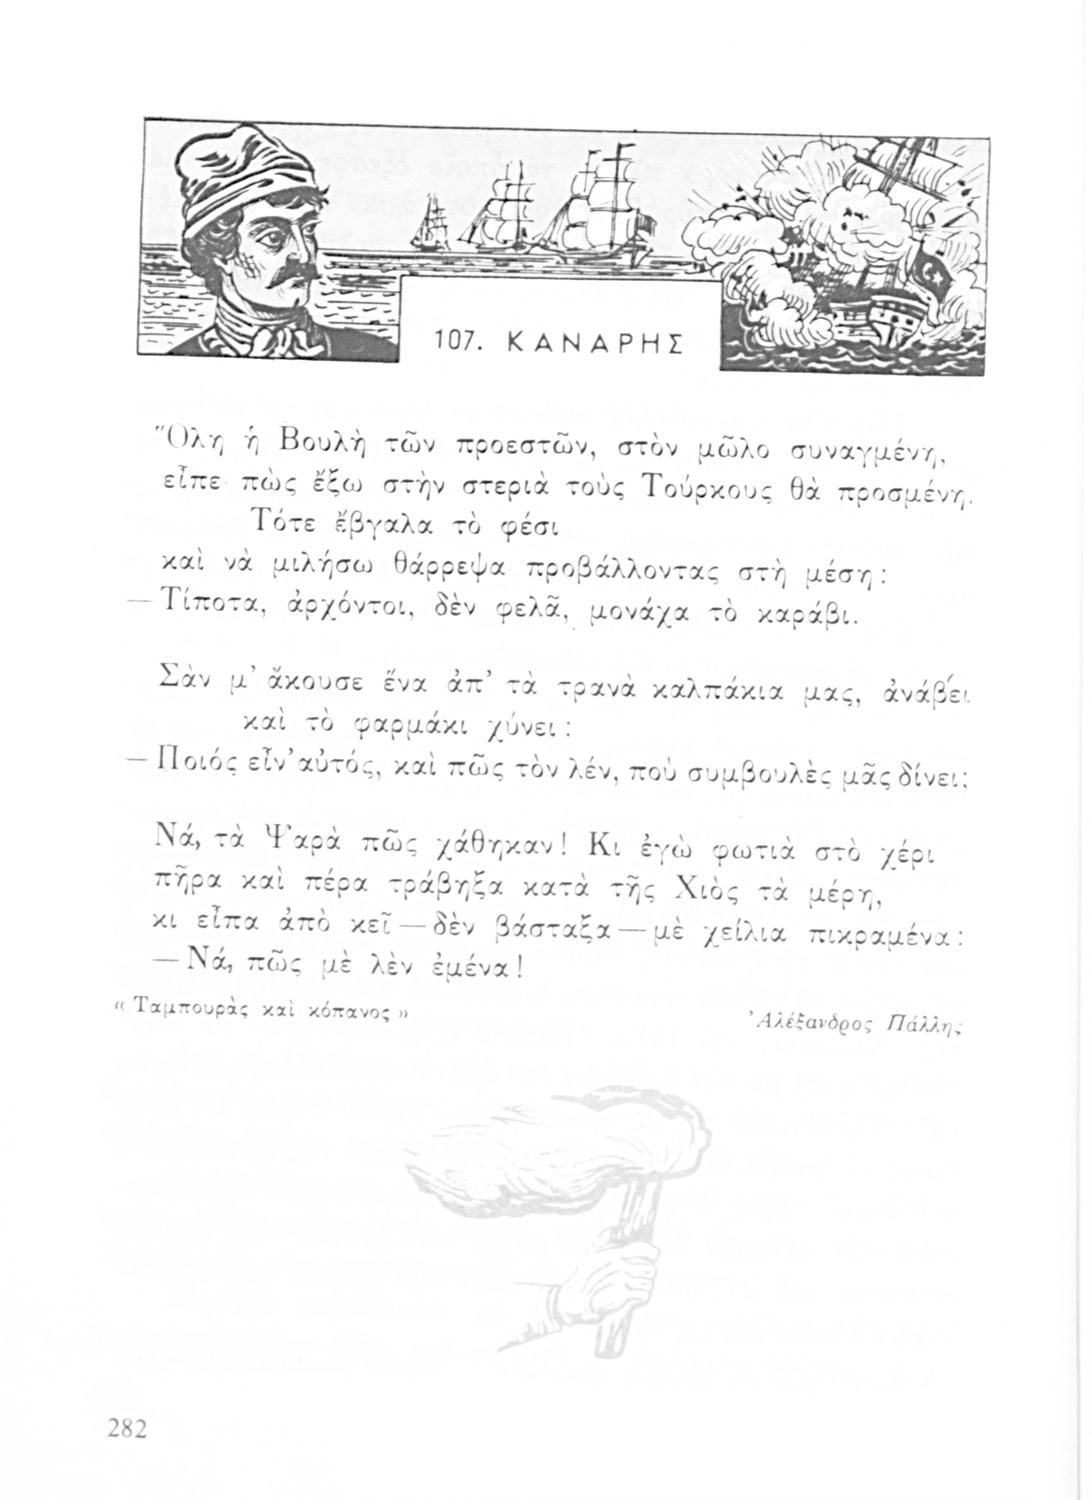 107. ΚΑΝΑΡΗΣ
Ὅλη ἡ Βουλὴ τῶν προεστῶν, στὸν μῶλο συναγμένη,
εἶπε πὼς ἔξω στὴν στεριὰ τοὺς Τούρκους θὰ προσμένη.
Τότε ἔβγαλα τὸ φέσι
καὶ νὰ μιλήσω θάρρεψα προβάλλοντας στὴ μέση:
— Τίποτα, ἀρχόντοι, δὲν φελᾶ, μονάχα τὸ καράβι.
Σὰν μ' ἄκουσε ἕνα ἀπ' τὰ τρανὰ καλπάκια μας, ἀνάβει
καὶ τὸ φαρμάκι χύνει:
— Ποιός εἶν' αὐτός, καὶ πῶς τὸν λέν, ποὺ συμβουλὲς μᾶς δίνει;
Νά, τὰ Ψαρὰ πῶς χάθηκαν! Κι ἐγὼ φωτιὰ στὸ χέρι
πῆρα καὶ πέρα τράβηξα κατὰ τῆς Χιὸς τὰ μέρη,
κι εἶπα ἀπὸ κεῖ — δὲν βάσταξα — μὲ χείλια πικραμένα:
— Νά, πῶς μὲ λὲν ἐμένα!
« Ταμπουρὰς καὶ κόπανος »
Ἀλέξανδρος Πάλλης
282